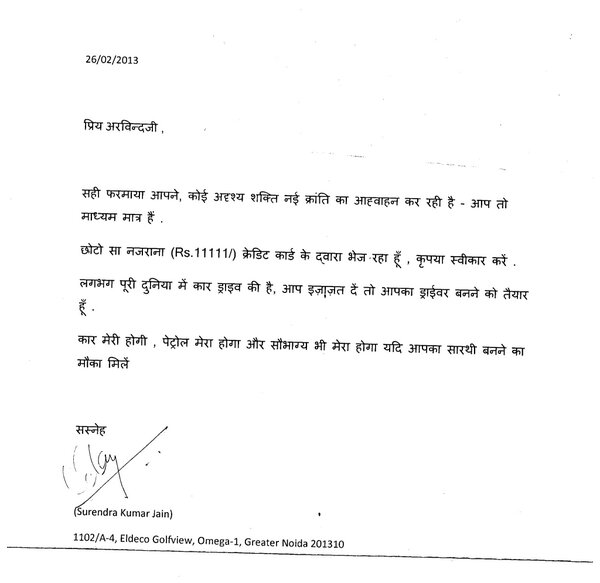 26/02/2013
प्रिय अरविन्दजी ,
सही फरमाया आपने, कोई अदृश्य शक्ति नई क्रांति का आह्वाहन कर रही है - आप तो
माध्यम मात्र हैं .
छोटो सा नजराना (Rs.11111/) क्रेडिट कार्ड के द्वारा भेज रहा हूँ , कृपया स्वीकार करें .
लगभग पूरी दुनिया में कार ड्राइव की है, आप इज़ाज़त दें तो आपका ड्राईवर बनने को तैयार
हूँ .
कार मेरी होगी , पेट्रोल मेरा होगा और सौभाग्य भी मेरा होगा यदि आपका सारथी बनने का
मौका मिलें
सस्नेह
(Surendra Kumar Jain)
1102/A-4, Eldeco Golfview, Omega-1, Greater Noida 201310